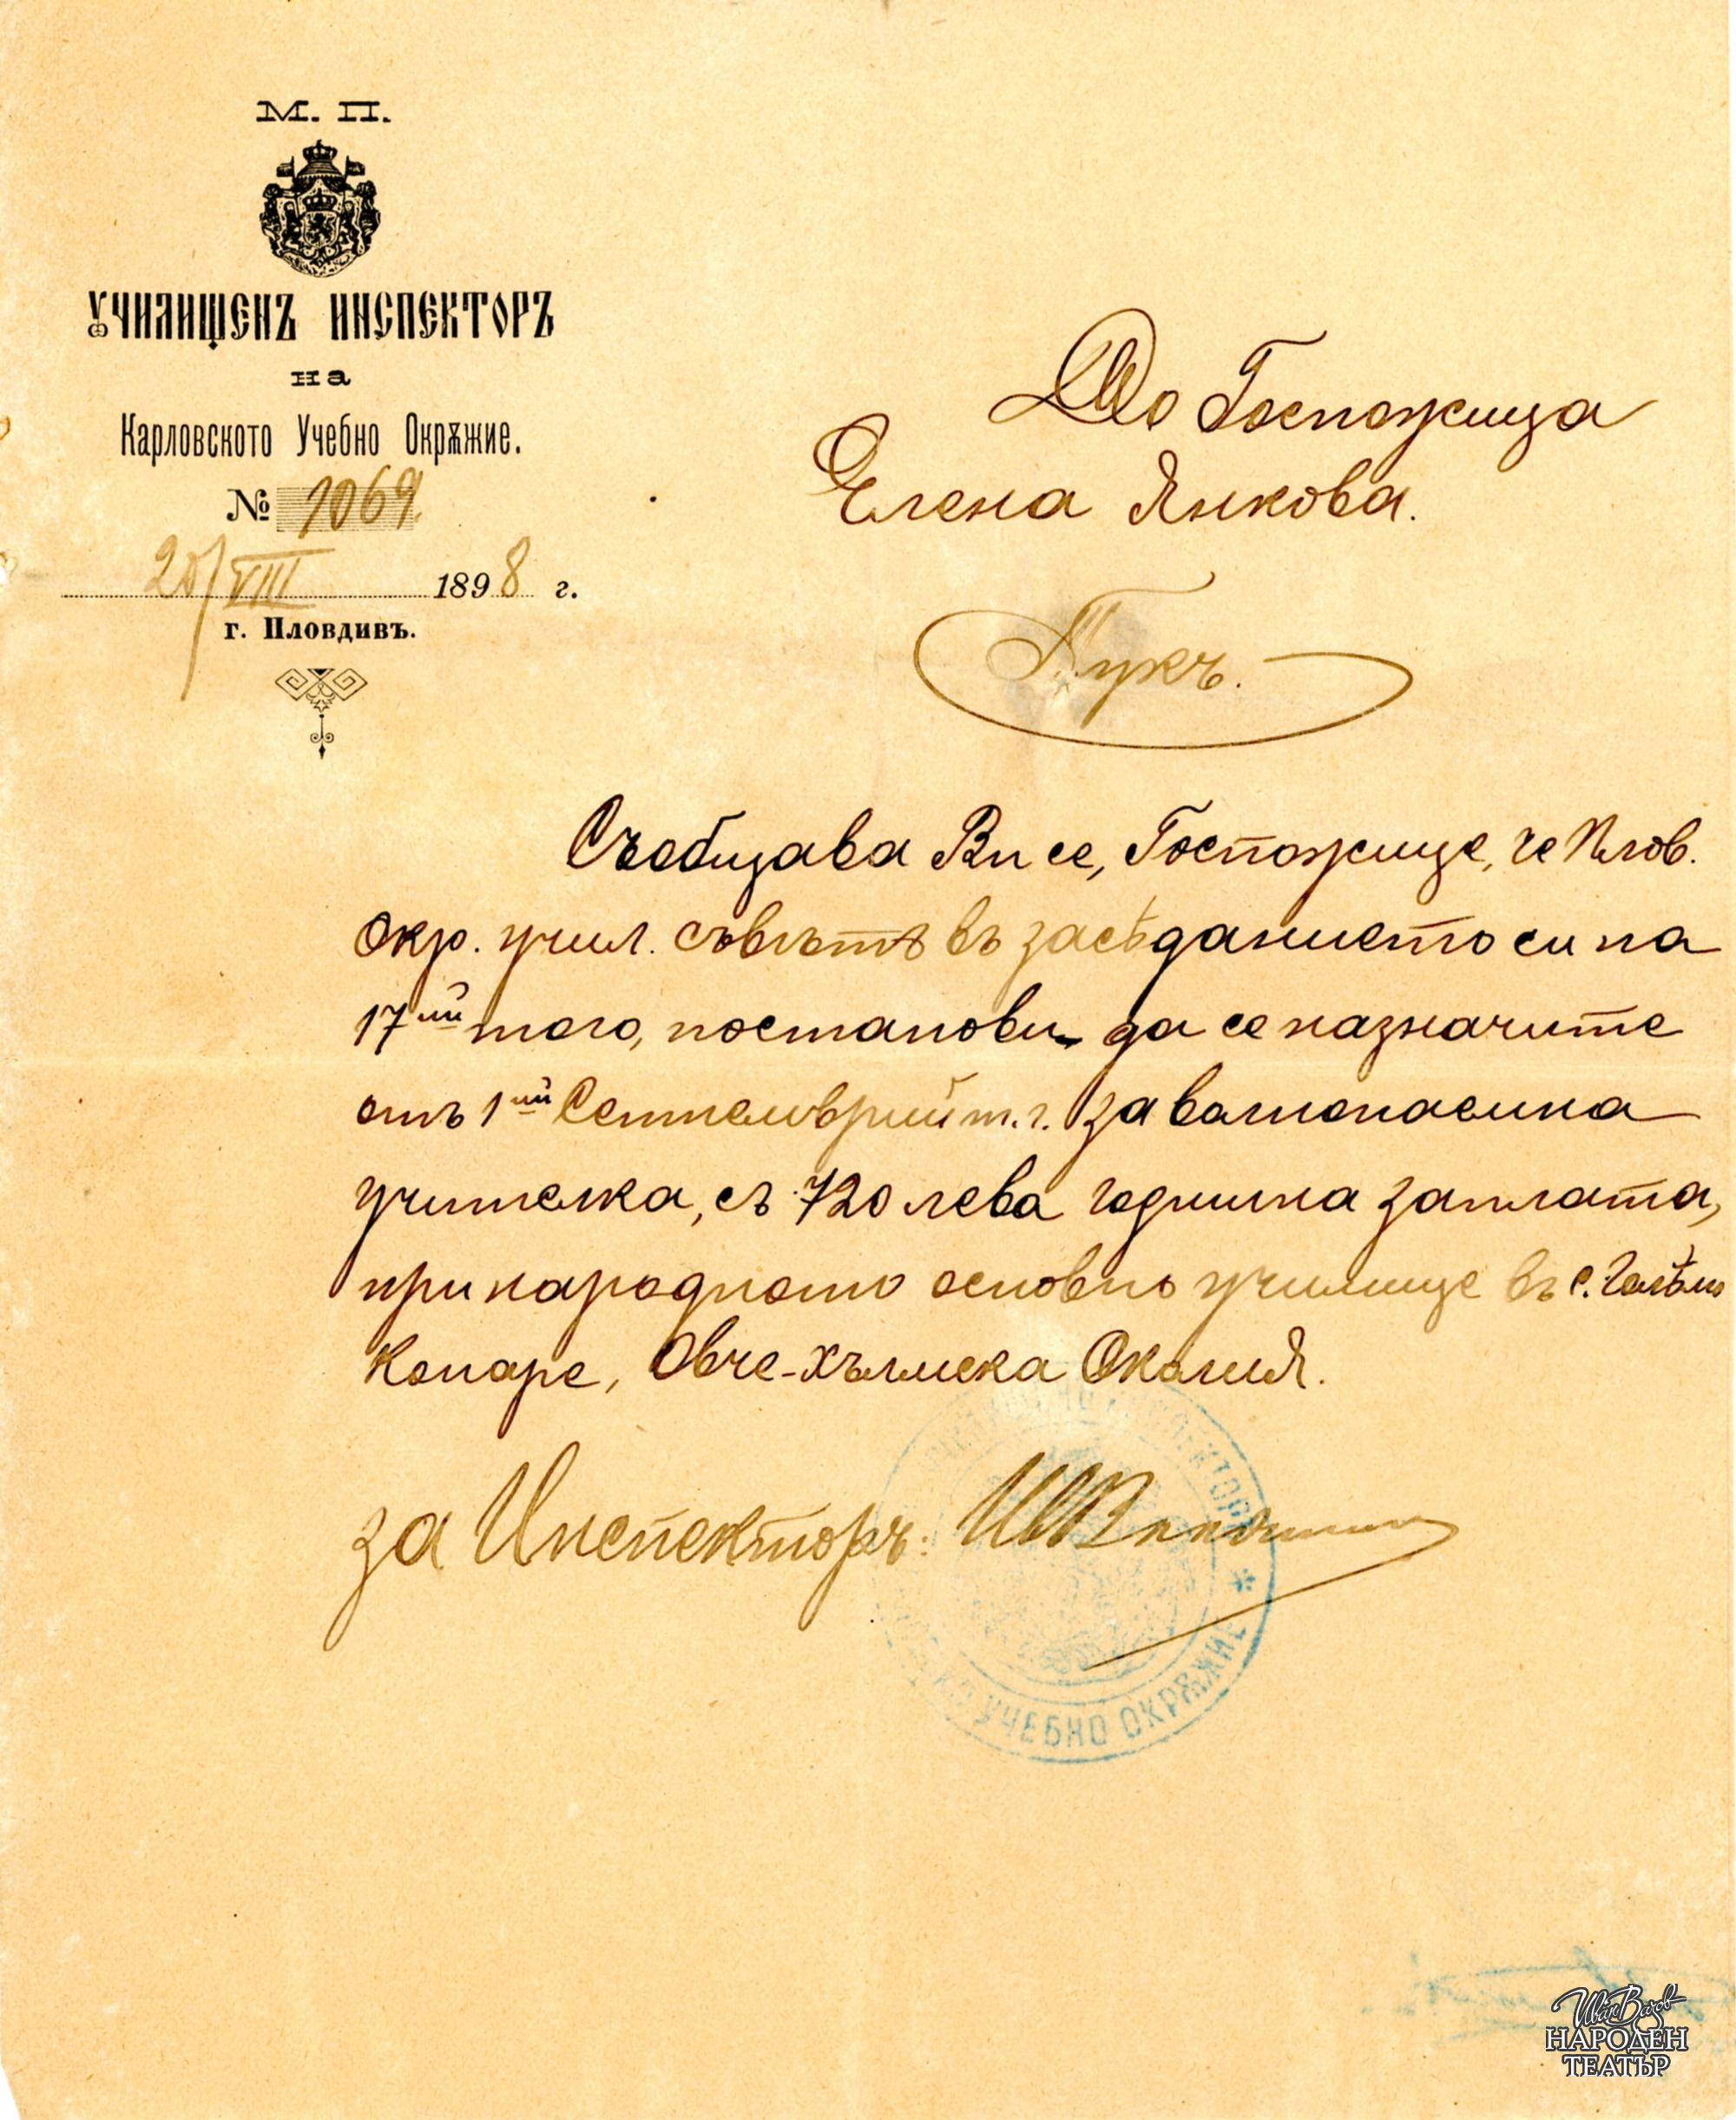 М. П.
УЧИЛИЩЕНЪ ИНСПЕКТОРЪ
на
Карловското Учебно Окрѫжие.
№ 1069
20/VIII 1898 г.
г. Пловдивъ.
До Госпожица
Елена Янкова.
Тукъ.
Съобщава Ви се, Госпожице, че Плов.
Окр. учил. съвѣтъ въ засѣданието си на
17ий того, постанови да се назначите
отъ 1ий Септемврий т. г. за волнонаемна
учителка, съ 720 лева годишна заплата,
при народното основно училище въ с. Голѣмо
Конаре, Овче-хълмска Околия.
за Инспекторъ:
УЧЕБНО ОКРѪЖИЕ *
Иван Вазов
НАРОДЕН
ТЕАТЪР